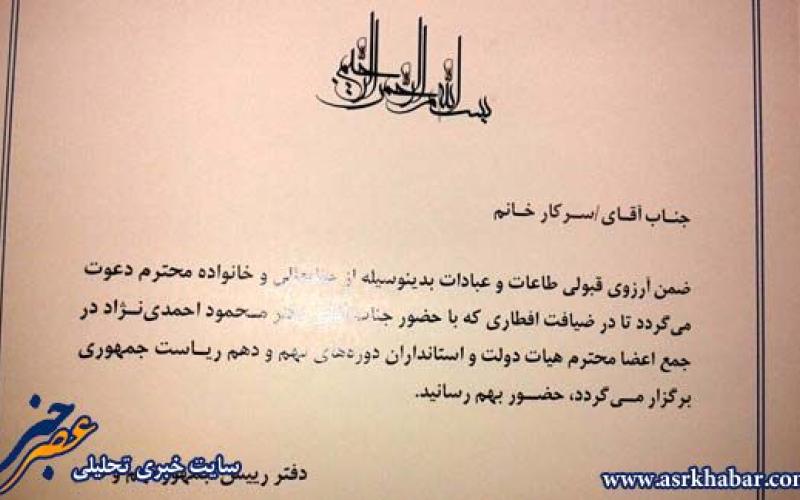 بسم الله الرحمن الرحیم
جناب آقای/سرکار خانم
ضمن آرزوی قبولی طاعات و عبادات بدینوسیله از جنابعالی و خانواده محترم دعوت
می‌گردد تا در ضیافت افطاری که با حضور جناب آقای دکتر محمود احمدی‌نژاد در
جمع اعضا محترم هیات دولت و استانداران دوره‌های نهم و دهم ریاست جمهوری
برگزار می‌گردد، حضور بهم رسانید.
دفتر رییس جمهور
عصر خبر
سایت خبری تحلیلی
www.asrkhabar.com